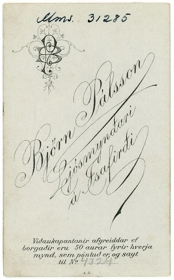 Mms. 31285
BP
Björn Pálsson
Ljósmyndari
á Ísafirði
Viðaukapantanir afgreiddar ef
borgaðir eru 50 aurar fyrir hverja
mynd, sem pöntuð er, og sagt
til No 4324